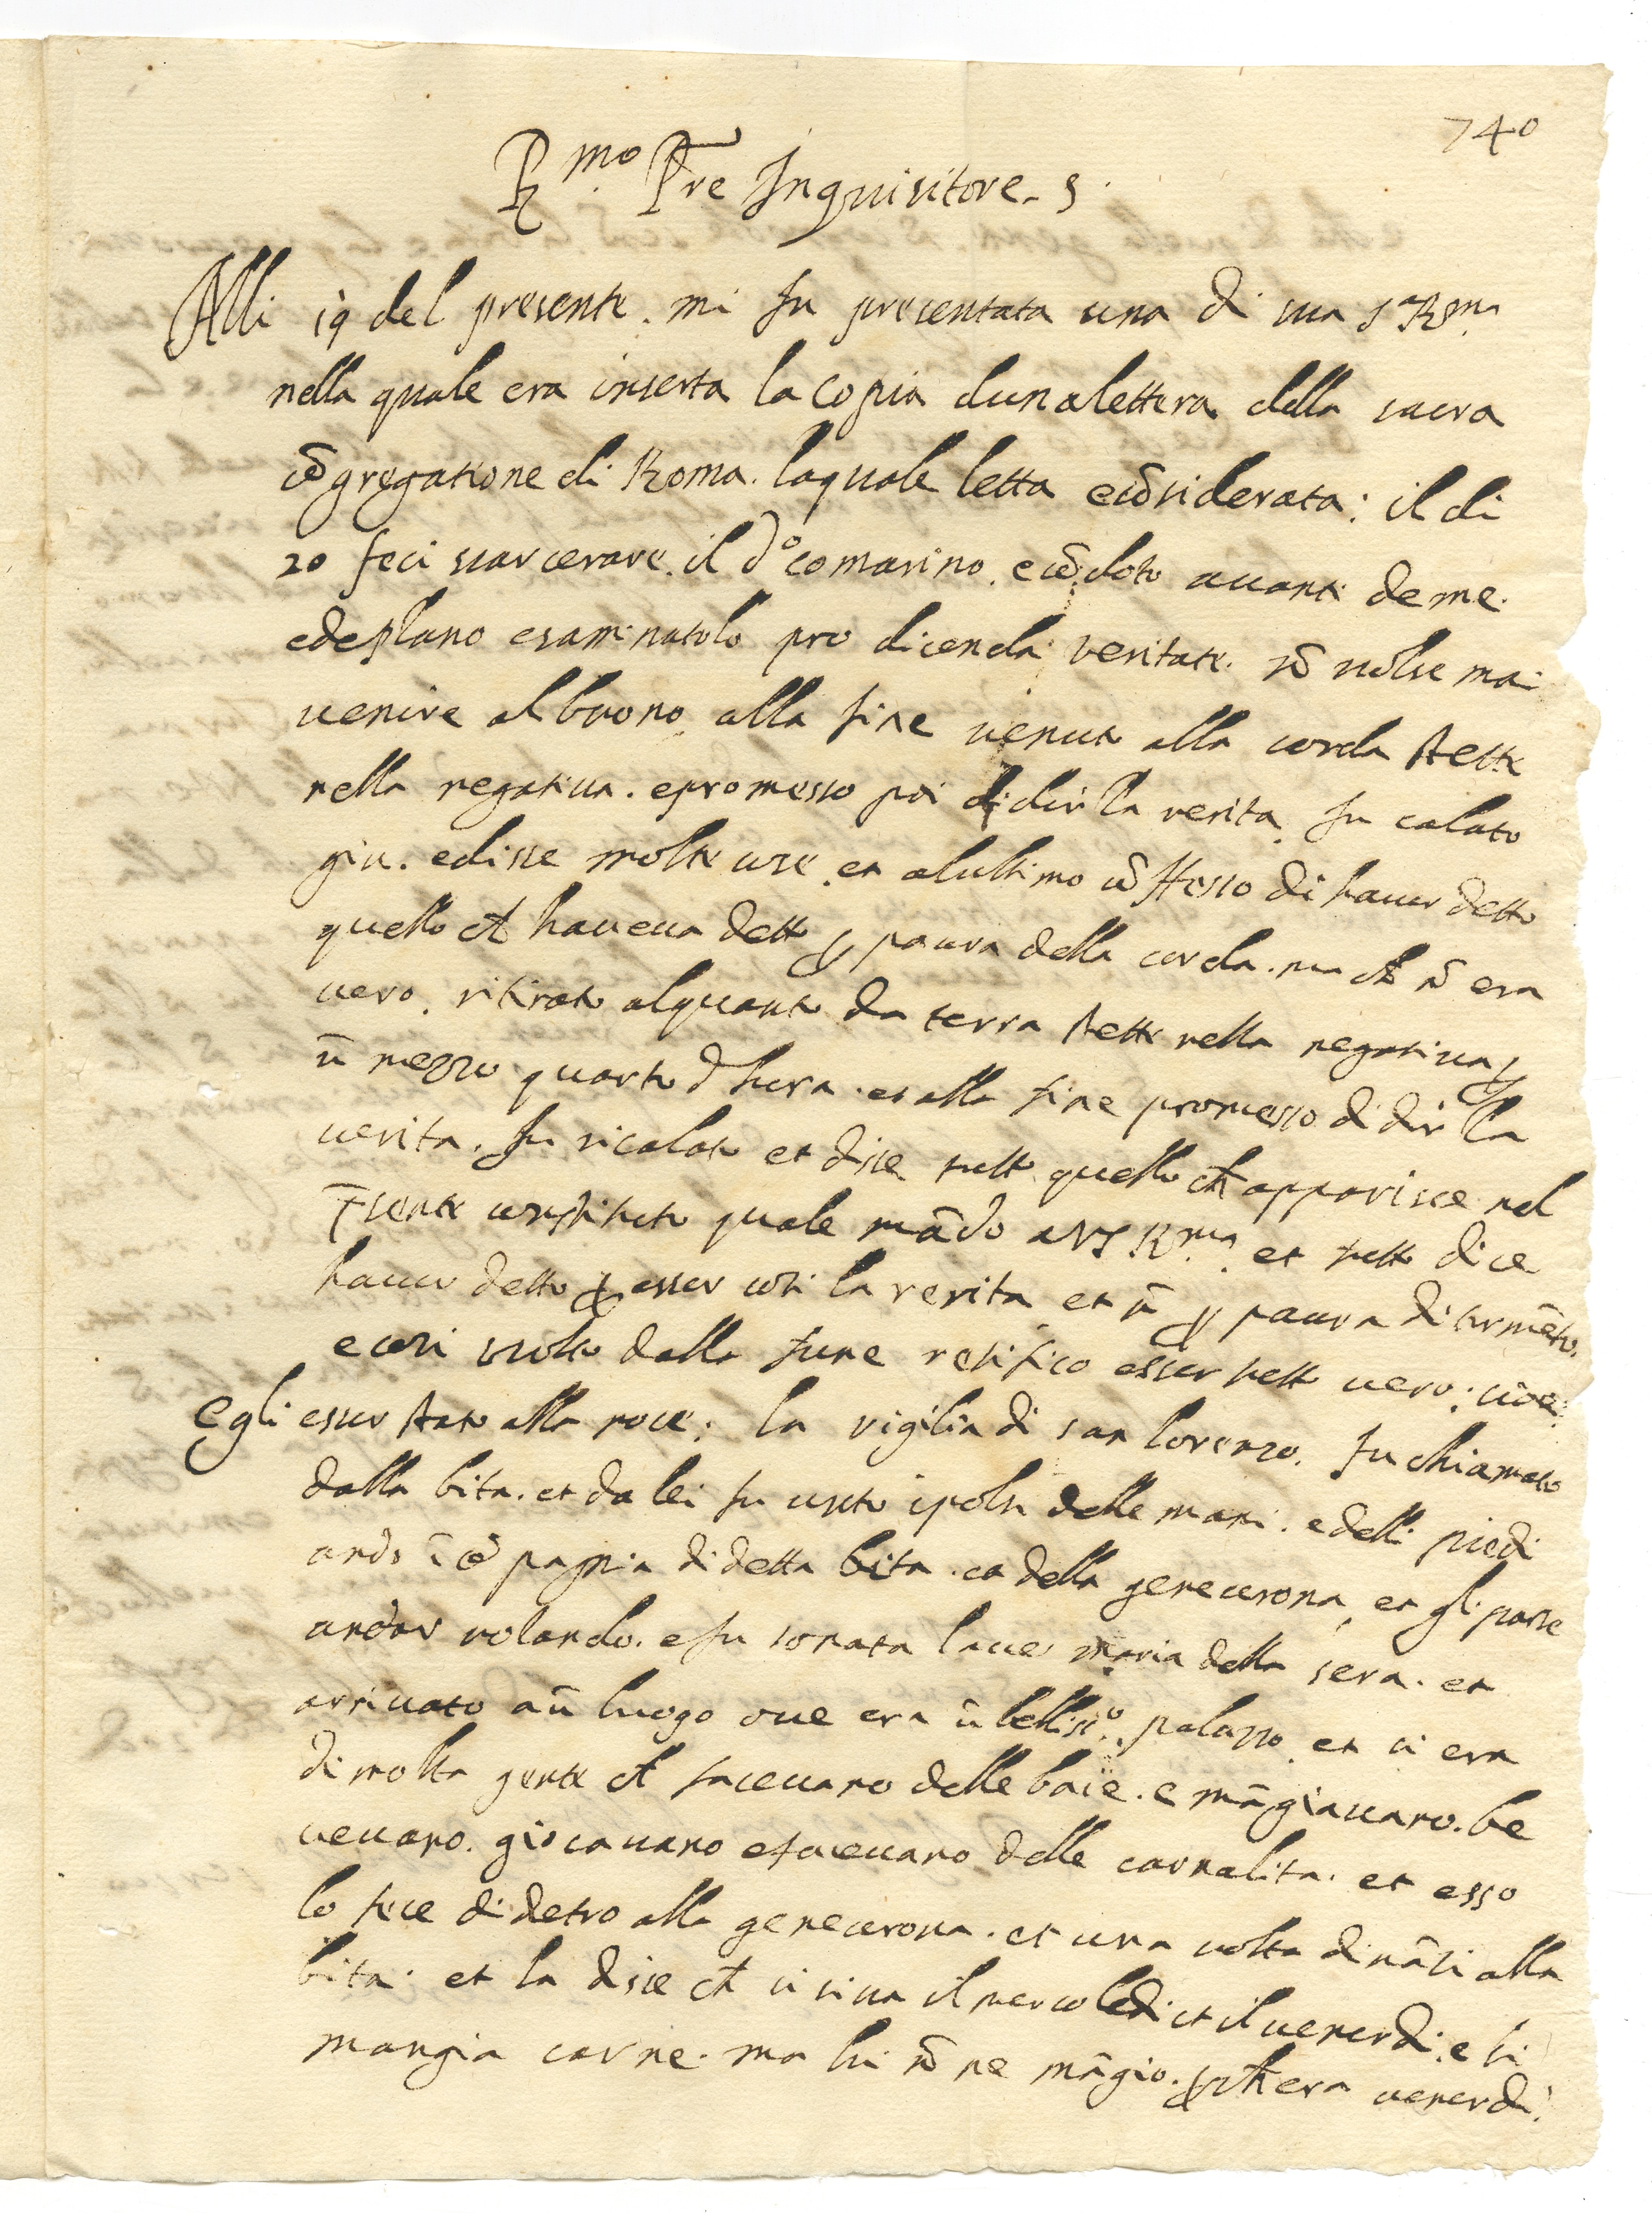 740
R.mo Pre Inquisitore. S.
Alli 19 del presente. mi fu presentata una di sua S. R.ma
nella quale era inserta la copia dunalettera della sacra
cōgregatione di Roma. laquale letta ecōsiderata: il di
20 feci scarcerare. il d.o comarino. ecōdoto avanti deme.
edeplano esaminatolo pro dicenda veritate. nō volse mai
venire albuono. alla fine venuto alla corda stette
nella negativa. epromesso poi didir la verita. fu calato
giu. edisse molte cose. et alultimo cōfesso di haver detto
quello ch haveva detto p paura della corda. ma ch nō era
vero. ritirato alquanto da terra stette nella negativa p
ū mezzo quarto d hora. et alla fine promesso di dir la
verita. fu ricalato et disse tutto quello ch apparisce nel
p̄sente constituto quale mādo a V S R.ma. et tutto dice
haver detto p esser cosi la verita et nō p paura di tormēto.
ecosi sciolto dalla fune retifico esser tutto vero: cioe:
Egli esser stato alla noce: la vigilia di san lorenzo. fu chiamato
dalla bita. et da lei fu unto ipolsi delle mani. edelli piedi
ando ī cōpagnia didetta bita. et della generona et gli parse
andar volando. e fu sonata lave maria della sera. et
arrivato aū luogo ove era ū belliss.o palazzo et vi era
di molta gente ch facevano delle baie. e māgiavano. be
vevano. giocavano efacevano delle carnalita. et esso
lo fece didetro alla generona. et una volta dināti alla
bita. et la disse ch vi si va il mercoledi et il venerdi. e si
mangia carne. ma lui nō ne māgio. pch era venerdi.